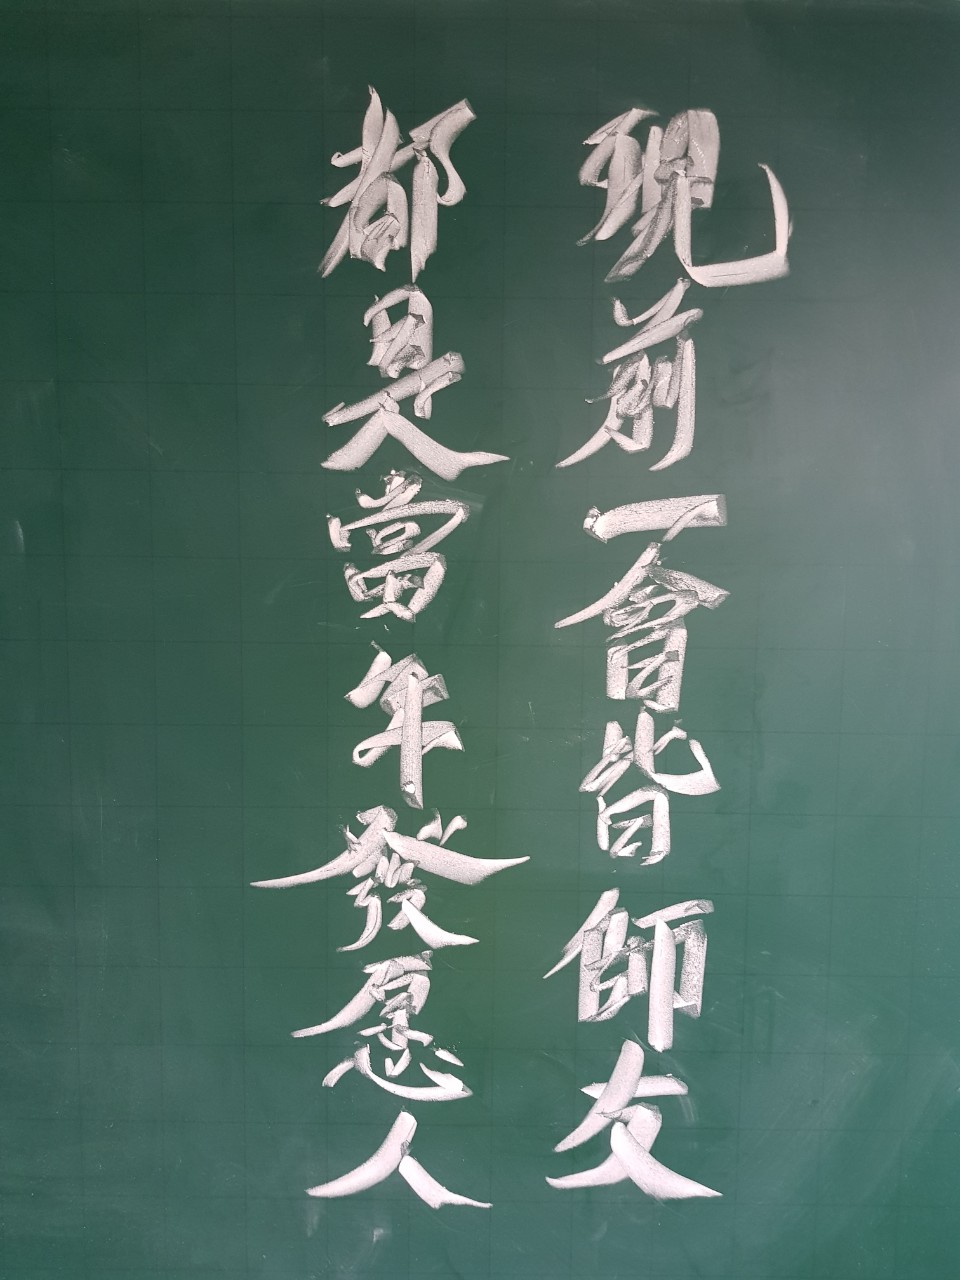 現前一會皆師友
都是當年發愿人